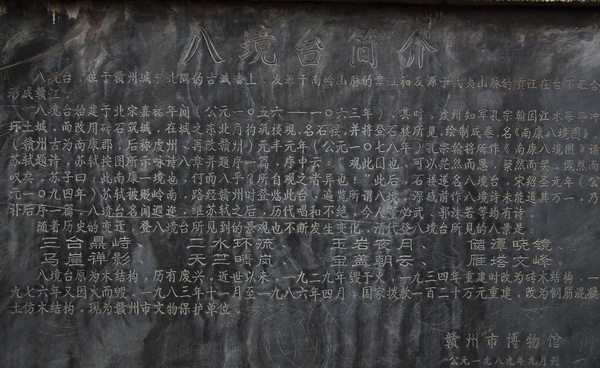 八境台简介
八境台，位于赣州城东北隅的古城墙上，发源于南岭山脉的章江和发源于武夷山脉的贡江在台下汇合
形成赣江。
八境台始建于北宋嘉祐年间（公元一〇五六——一〇六三年），其时，虔州知军孔宗翰因江水每年冲
环土城，而改用砖石筑城，在城之东北角构筑楼观，名石楼，并将登石楼所见，绘制成卷，名《南康八境图》，
（赣州古为南康郡，后称虔州）。元丰元年（公元一〇七八年），孔宗翰将所作《南康八境图》请
苏轼题诗，苏轼按图所示咏诗八章，并题序一篇，序中云："观此图也，可以茫然而思，粲然而笑，慨然而
叹矣，苏子曰，此南康之一境也，何从而八乎，所自观之者异也。"此后，石楼遂名八境台，宋绍圣元年（公
元一〇九四年）苏轼被贬岭南，路经赣州时登此台，遍览所谓八境，深感前作八境诗未能道其万一，乃
补后序一篇。八境台名闻遐迩，继苏轼之后，历代唱和不绝，今人
随着历史的变迁，登八境台所见到的景观也不断发生变化，清代登八境台所见的八景是：
三台鼎峙、二水环流、玉岩夜月、储潭晓镜、
马崖禅影、天竺晴岚、宝盖朝云、雁塔文峰。
八境台原为木结构，历有废兴，近世以来，一九二九年毁于火，一九三四年重建时改为砖木结构，一
九七六年又因火而毁，一九八三年十一月至一九八六年四月，国家拨款一百二十万元重建，改为钢筋混凝
土仿木结构，现为赣州市文物保护单位。
赣州市博物馆
公元一九八九年九月刊